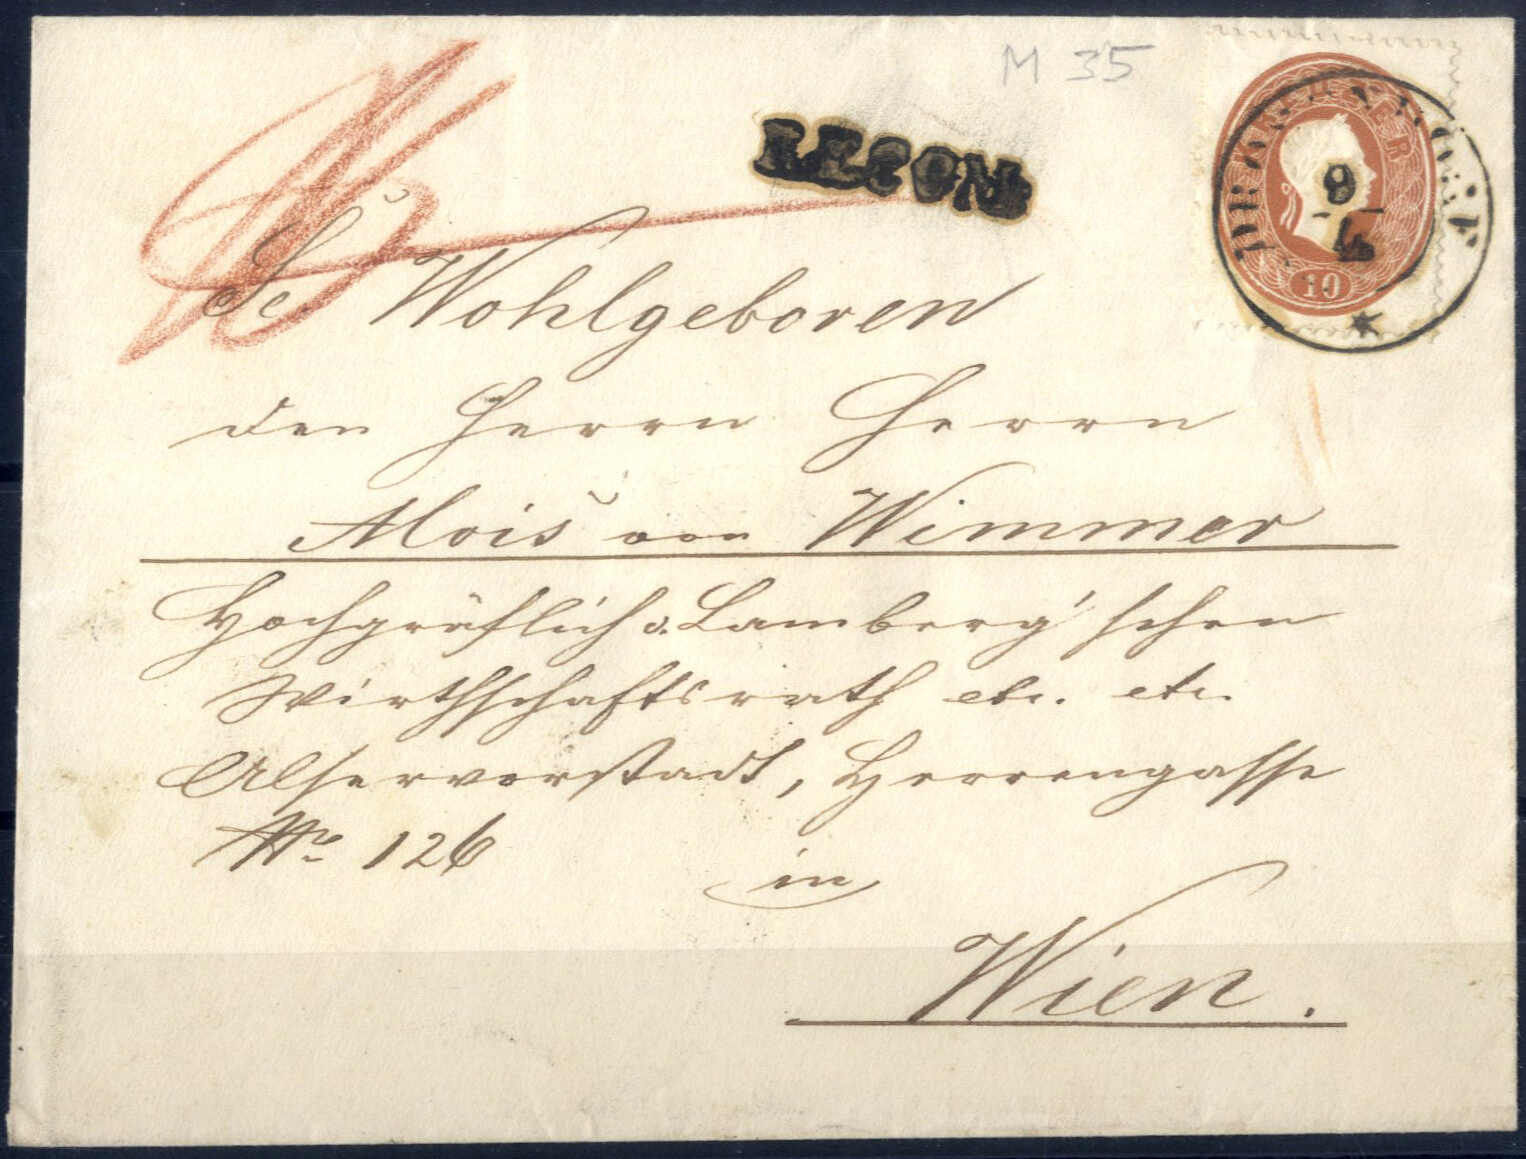 M 35
RECOM
10
9
4
Sr. Wohlgeboren
den Herrn Herrn
Alois von Wimmer
Hochgräflich v. Lamberg'schen
Wirthschaftsrath etc. etc.
Alservorstadt, Herrengasse
Nro. 126
in
Wien.